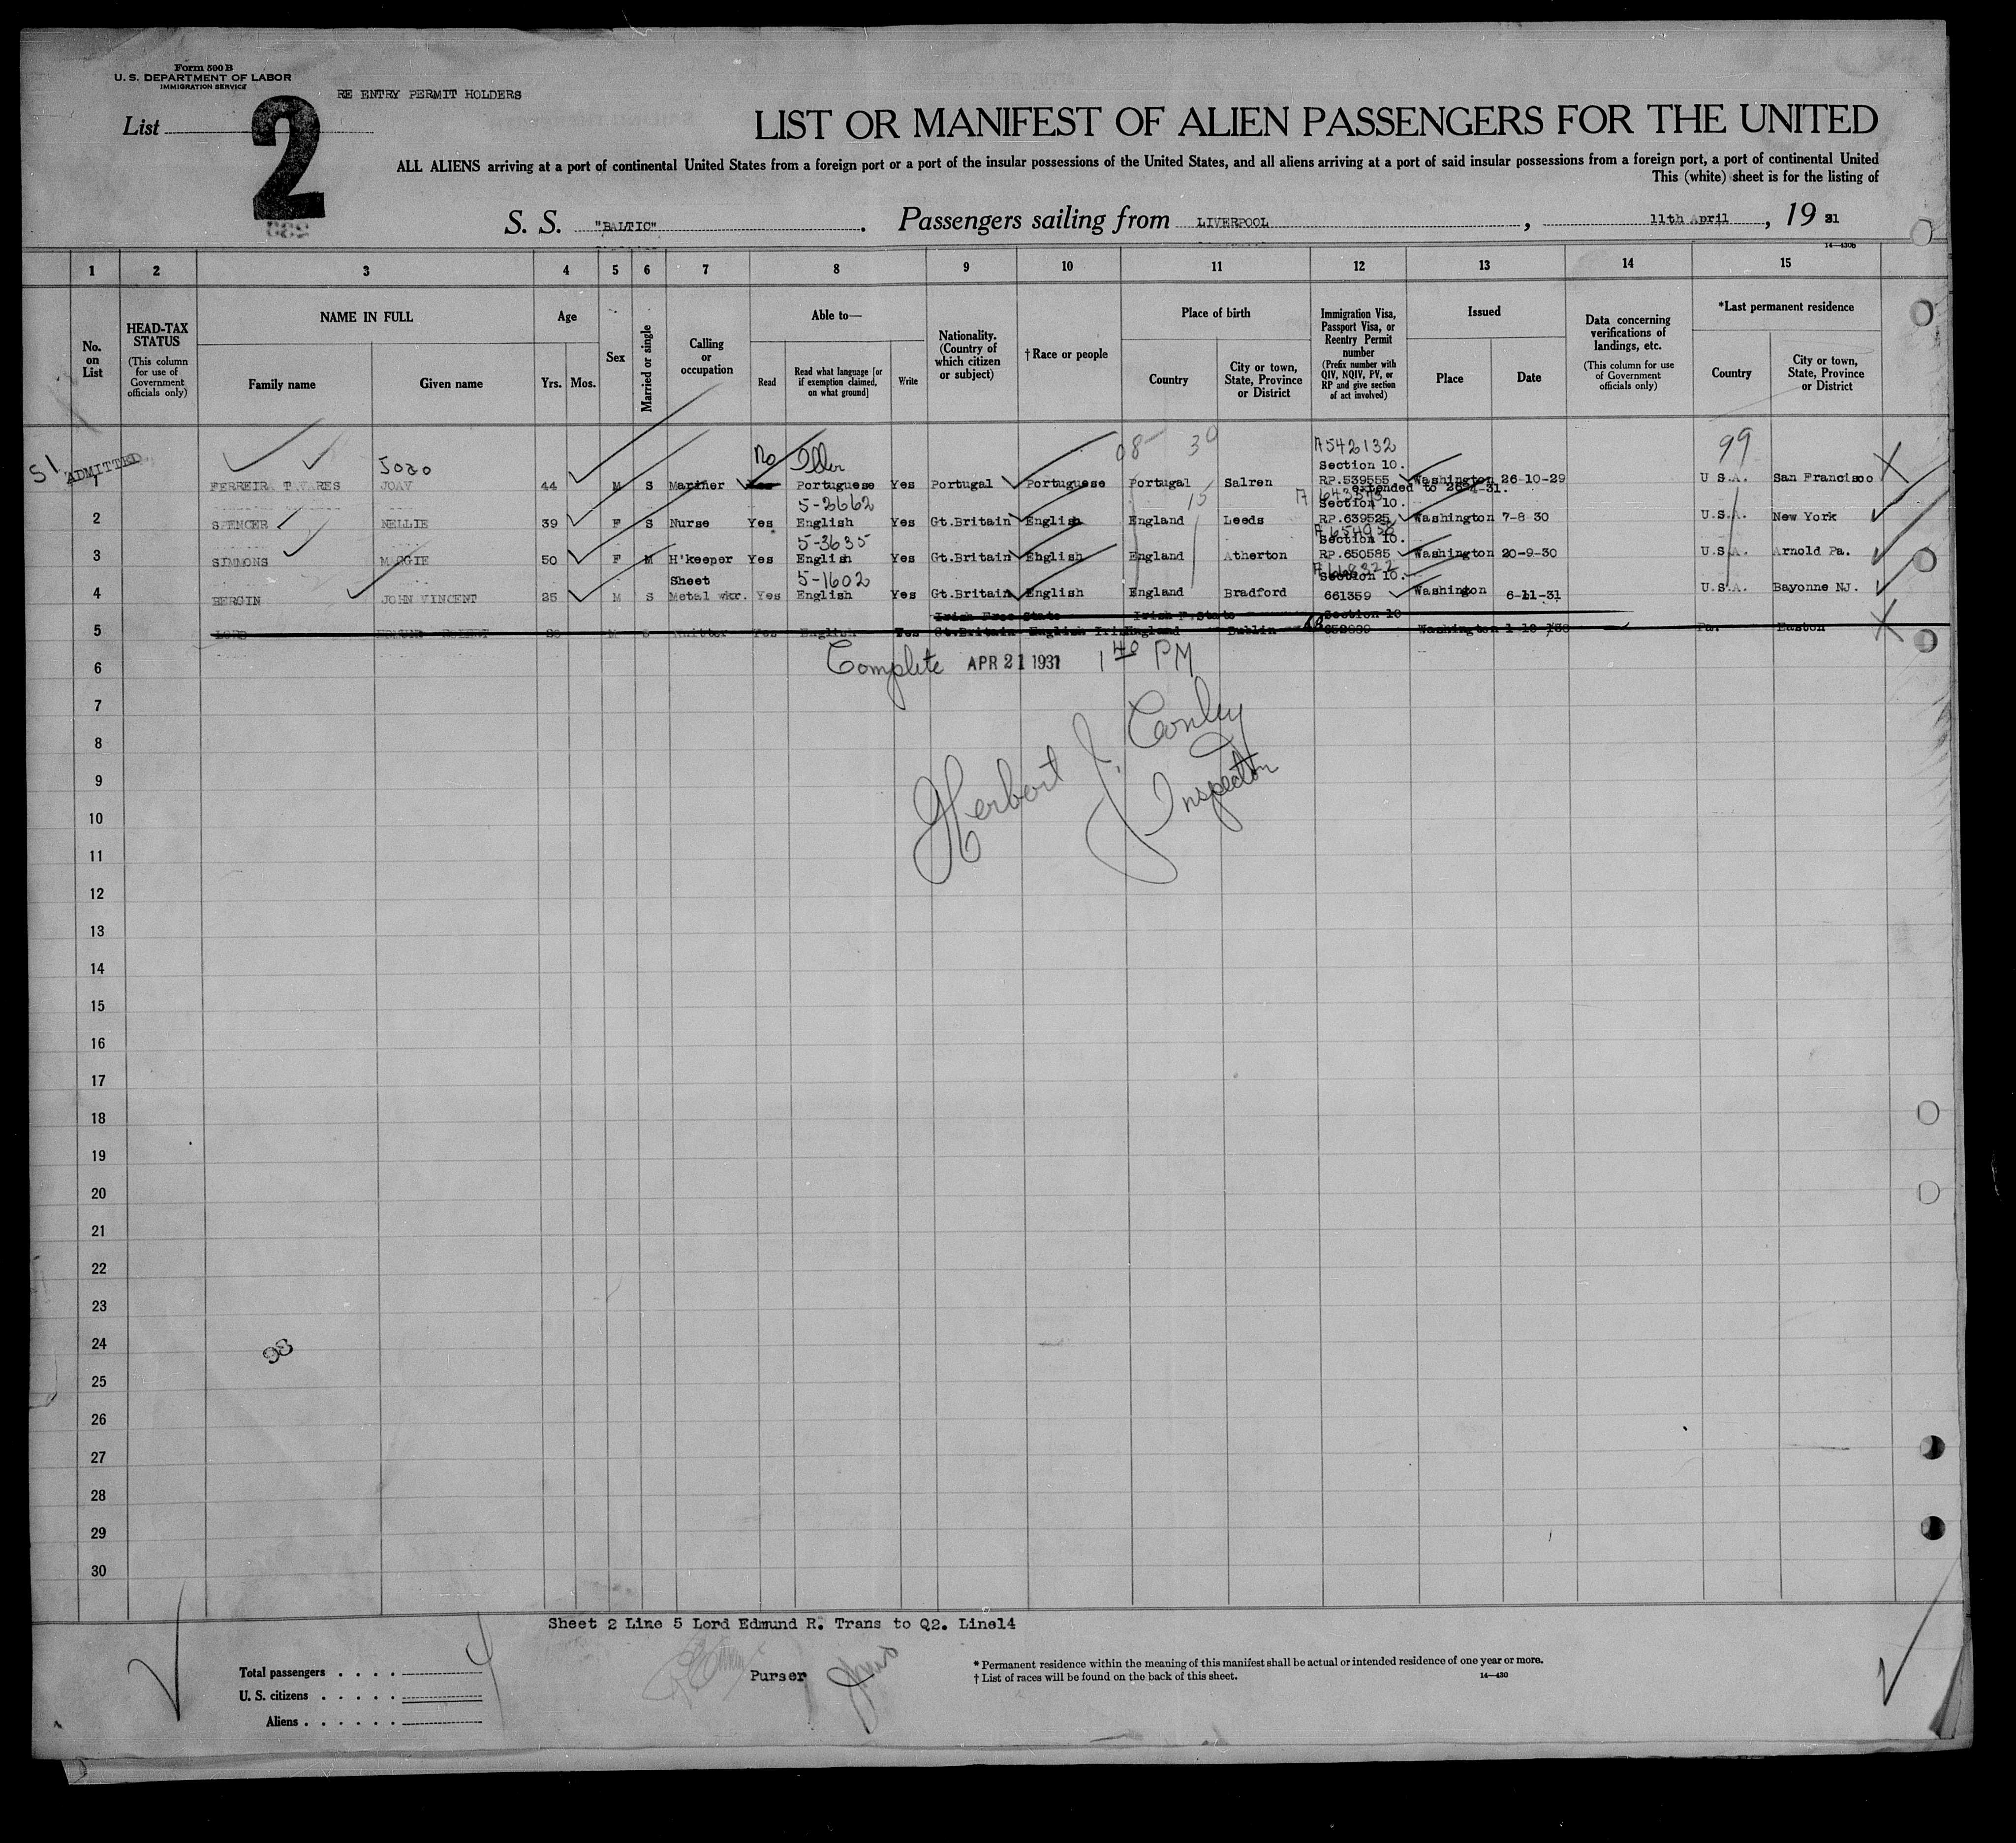 Form 500 B
U. S. DEPARTMENT OF LABOR
IMMIGRATION SERVICE
RE ENTRY PERMIT HOLDERS
List 2
LIST OR MANIFEST OF ALIEN PASSENGERS FOR THE UNITED
ALL ALIENS arriving at a port of continental United States from a foreign port or a port of the insular possessions of the United States, and all aliens arriving at a port of said insular possessions from a foreign port, a port of continental United
This (white) sheet is for the listing of
S. S. "BALTIC". Passengers sailing from LIVERPOOL, 11th April, 19 31
14—430b
1 2 3 4 5 6 7 8 9 10 11 12 13 14 15
No. on List
HEAD-TAX STATUS (This column for use of Government officials only)
NAME IN FULL
Family name Given name
Age
Yrs. Mos.
Sex
Married or single
Calling or occupation
Able to—
Read Read what language [or if exemption claimed, on what ground] Write
Nationality. (Country of which citizen or subject)
† Race or people
Place of birth
Country City or town, State, Province or District
Immigration Visa, Passport Visa, or Reentry Permit number (Prefix number with QIV, NQIV, PV, or RP and give section of act involved)
Issued
Place Date
Data concerning verifications of landings, etc. (This column for use of Government officials only)
*Last permanent residence
Country City or town, State, Province or District
08 30 A542132 99
SI ADMITTED Joao No Section 10.
1 FERREIRA TAVARES JOAV 44 M S Mariner Portuguese Yes Portugal Portuguese Portugal Salren RP.539555 Washington 26-10-29 U S.A. San Francisco
5-2662 15 extended to
Section 10.
2 SPENCER NELLIE 39 F S Nurse Yes English Yes Gt.Britain English England Leeds RP.639525 Washington 7-8 30 U.S.A. New York
5-3635 Section 10.
3 SIMMONS MAGGIE 50 F M H'keeper Yes English Yes Gt.Britain English England Atherton RP.650585 Washington 20-9-30 U.S.A. Arnold Pa.
Sheet 5-1602 A668322 Section 10.
4 BERGIN JOHN VINCENT 25 M S Metal wkr. Yes English Yes Gt.Britain English England Bradford 661359 Washington 6-11-31 U.S.A. Bayonne NJ.
Irish Free State Irish F.State Section 10
5 LORD Yes English Yes Gt.Britain English England Dublin Washington Pa. Easton
6 Complete APR 21 1931 1 40 PM
7
8
Herbert J. Conley
Inspector
9
10
11
12
13
14
15
16
17
18
19
20
21
22
23
24
93
25
26
27
28
29
30
Sheet 2 Line 5 Lord Edmund R. Trans to Q2. Line14
Total passengers . . . . 4
U. S. citizens . . . . .
Aliens . . . . . .
Purser
* Permanent residence within the meaning of this manifest shall be actual or intended residence of one year or more.
† List of races will be found on the back of this sheet.
14—430